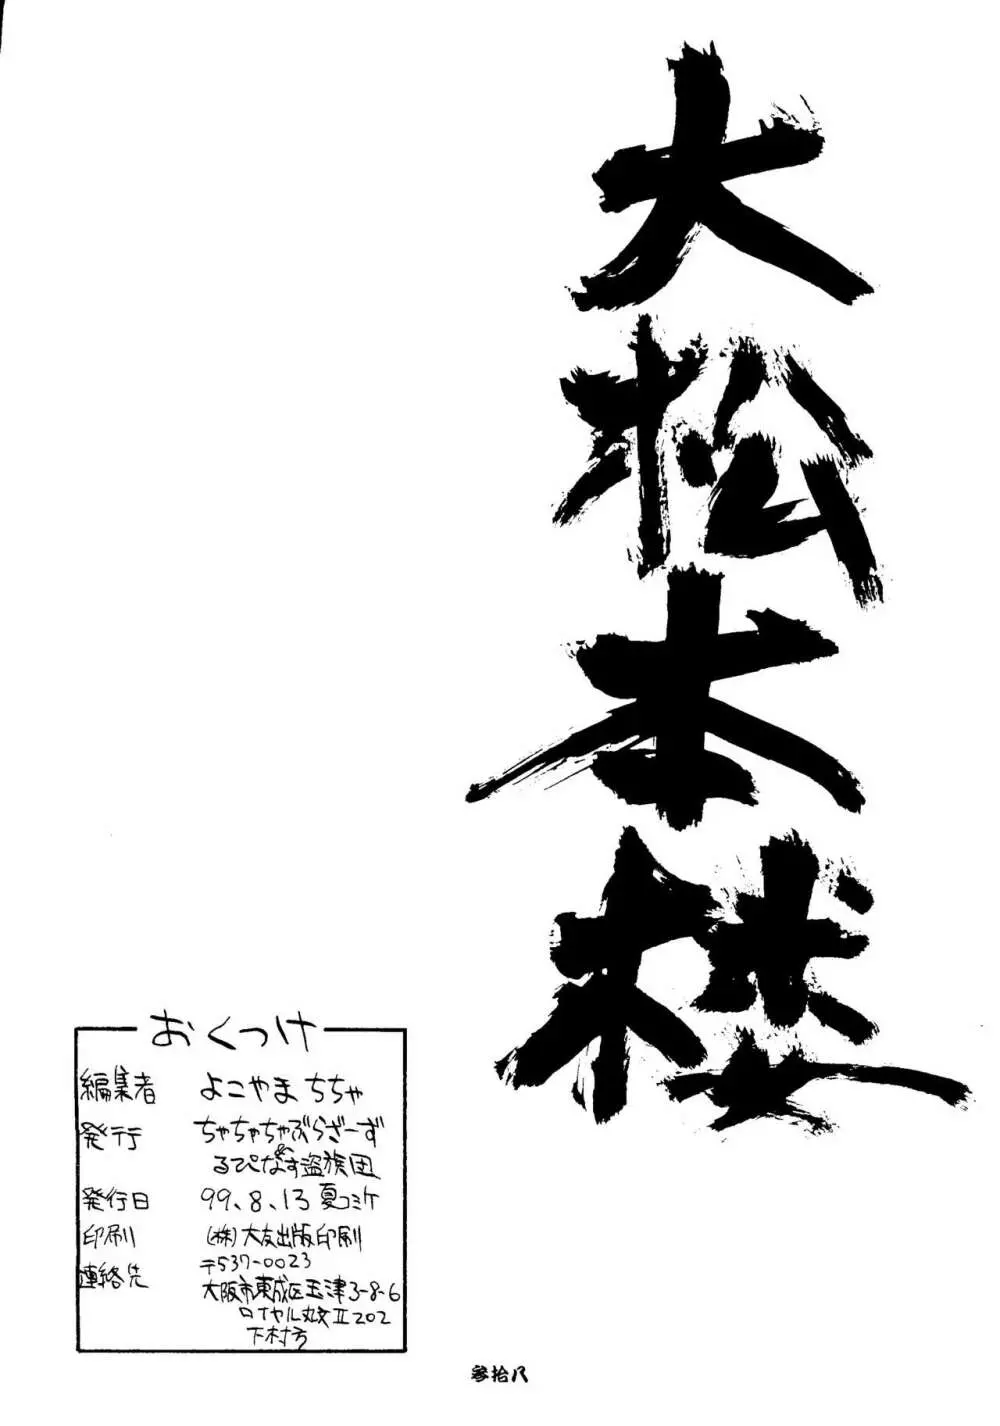 大松本楼
おくつけ
編集者 よこやまちちゃ
発行 ちゃちゃちゃぶらざーず
るぴなす盗族団
発行日 99.8.13 夏コミケ
印刷 (株)大友出版印刷
連絡先 〒537-0023
大阪市東成区玉津3-8-6
ロイヤル丸文II 202
下村方
参拾八